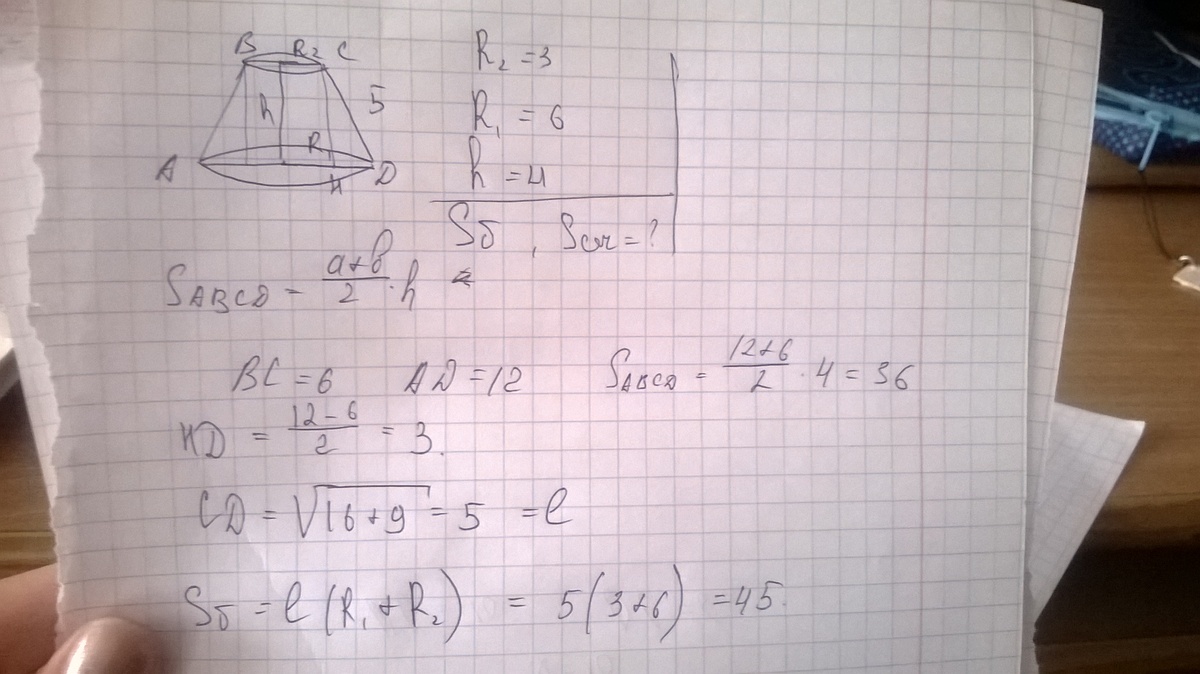 B R₂ C
h 5
R
A H D
R₂ = 3
R₁ = 6
h = 4
Sб, Sсеч = ?
S_ABCD = (a+b)/2 · h
BC = 6 AD = 12 S_ABCD = (12+6)/2 · 4 = 36
HD = (12-6)/2 = 3.
CD = √(16+9) = 5 = l
Sб = l (R₁ + R₂) = 5(3+6) = 45.